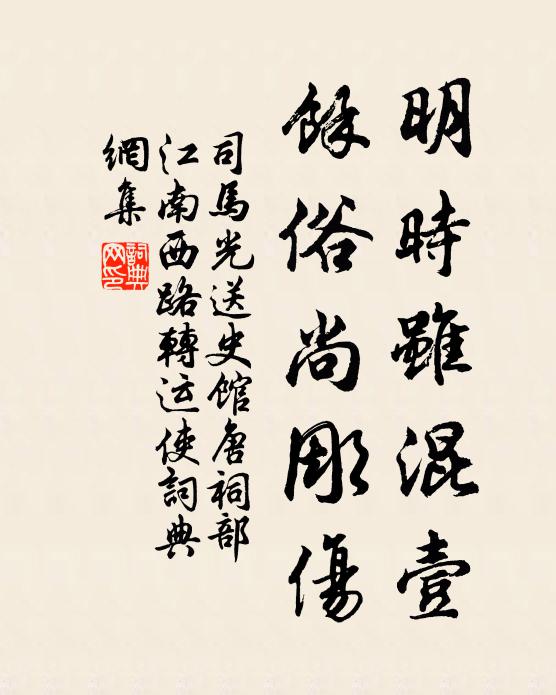 明時雖混壹
餘俗尚彫傷
司馬光送史館唐祠部
江南西路轉运使詞典
網集
詞典
网印